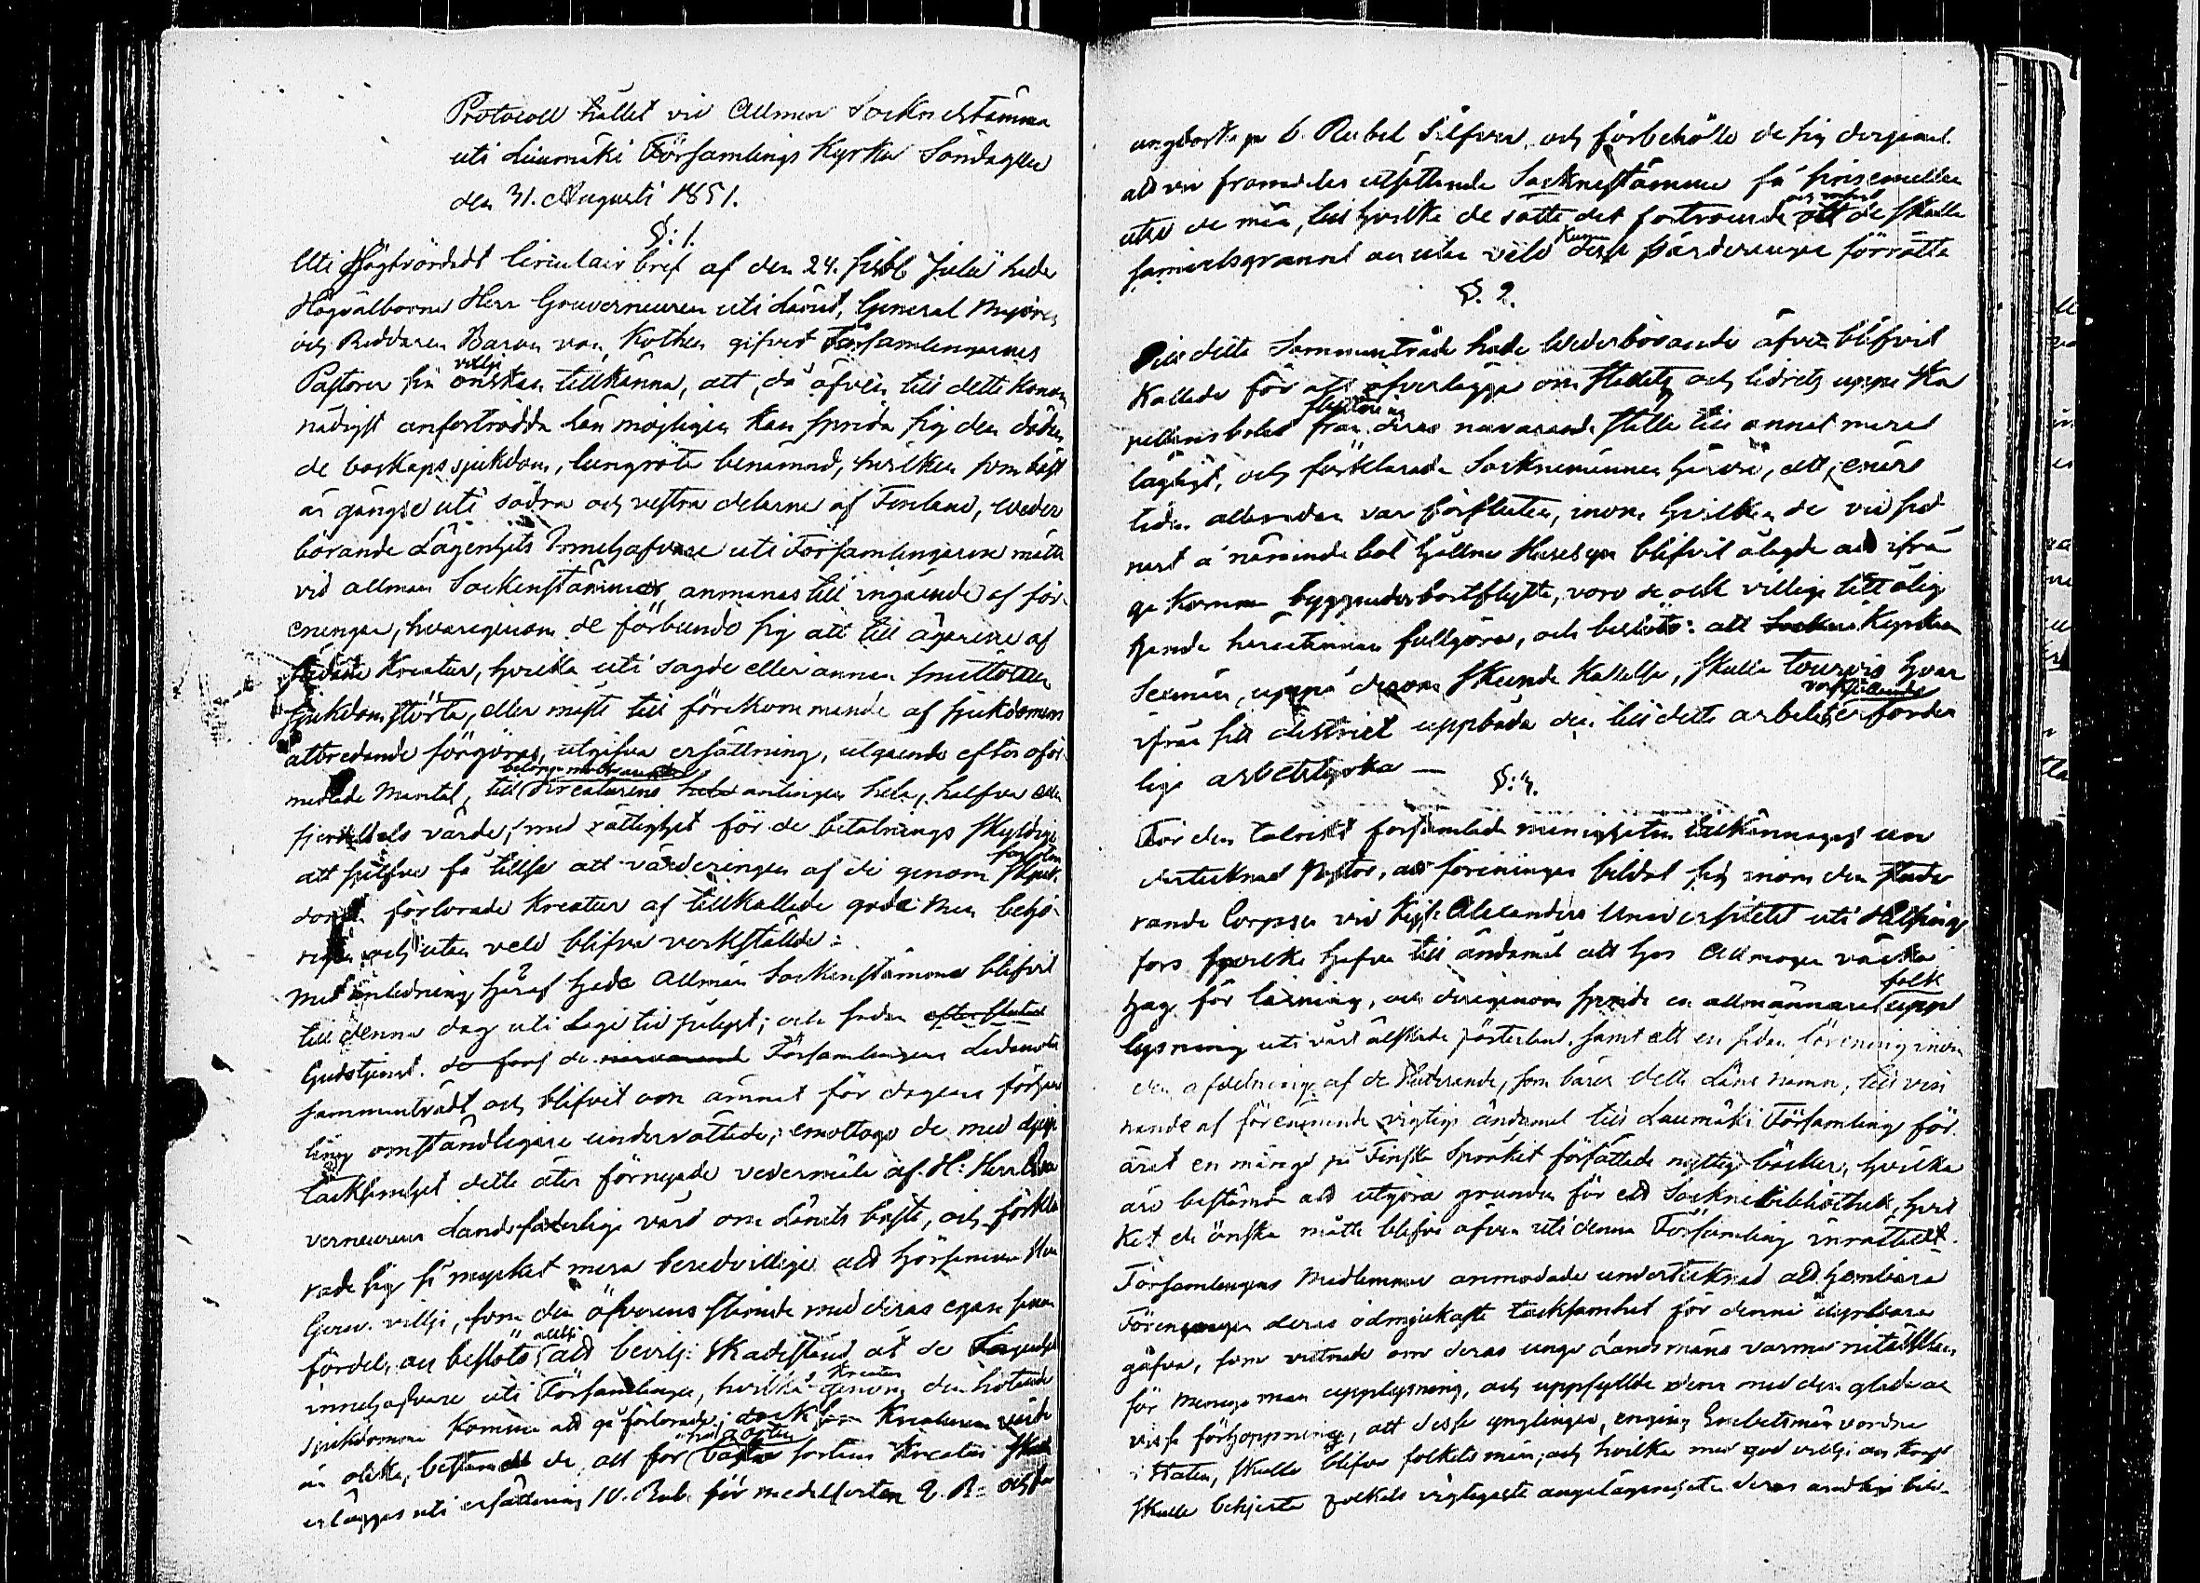 Protocoll hållet vid Allmän Sockne Stämma
uti Luumäki Församlings Kyrka Söndagen
den 31. Augusti 1851.
§: 1.
Uti Högtvördadt Circulair bref af den 24. sistl. Julii hade
Högvälborne Herr Gouverneuren uti Länet, General Majoren
och Riddaren Baron von Kothen gifvit Församlingarnes
Pastorer sin villja önskan tillkänna, att, då äfven till dette honom
nådigst anförtrodda Län möjligen kan sprida sig den döden
de boskapssjukdom, lungröta benämnd, hvilken som bäst
är gängse uti södra och vestra delarne af Finland, veder
börande Lägenhets Innehafvare uti Församlingarne måtte
vid allmän Sockenstämma anmanas till ingående af för
eningar, hvarigenom de förbundo sig att till ägarene af
sådane Kreatur, hvilka uti sagde eller annan smittosam
sjukdom störta, eller måste till förekommande af sjukdomens
utbredande förgöras, utgifva ersättning, utgående efter oför
medlade Mantal, till Kreaturens hela antingen hela, halfva eller
fjerdedels värde, med rättighet för de betalnings skyldige
att sjelfve få tillse att värderingen af de genom sjuk
domen förlorade Kreatur af tillkallade gode Män behö
rigen och utan veld blifva verkställde:
Med anledning häraf hade Allmän Sockenstämma blifvit
till denna dag uti Laga tid pålyst; och sedan efter slutad
Gudstjenst de närvarande Församlingens Ledamöter
sammanträdt och blifvit om ämnet för dagens öfverlägg
ning omständligare underrättade, emottogo de med djup
tacksamhet dette åter förnyade vedermäle af H: Herr Gou
verneurens Landsfaderliga vård om Länets bästa, och förkla
rade sig så mycket mera beredvillige att hörsamma Herr
Gouv. villja, som den öfverensstämde med deras egen sanna
fördel, och beslöts att bevilja Skadestånd åt de Lägenhets
innehafvare uti Församlingen, hvilka Kreatur genom den hotande
sjukdomen komma att gå förlorade; dock som Kreaturens värde
är olika, bestämde de, att för bästa sortens Kreatur skulle
erläggas uti ersättning 10. Rub. för medelsorten 8. R: och för
ungboskap 6. Rubel Silfver, och förbehöllo de sig dessutom
att vid framdeles utsättande Sockneståmma få sinsemellan
utse de män, till hvilka de satte det förtroende att de skulle
samvetsgrannt och utan veld dessa värderingar förrätta
§. 2.
Till detta Sammanträde hade Vederbörande äfven blifvit
Kallade för att öfverlägga om Stallets och lidrets uppå Ka
pellansbolet flyttning från deras nuvarande ställe till annat mera
lägligt, och förklarade Socknemännen härvid, att, emedan
tiden allaredan var förfluten, inom hvilken de vid sed
nast å nämnde bol hållne Husesyn blifvit ålagde att ifråga
komne byggnader bortflytta, voro de ock villige sitt ålig
gande härutinnan fullgöra, och beslöts: att Kyrkans
Sexmän, uppå derom skeende kallelse, skulle tourvis hvar
ifrån sitt district uppbåda den till detta arbetes verkställande erforder
liga arbetsstyrka —
§: 3.
För den talrikt församlade menigheten tillkännagaf un
dertecknad Pastor, att föreningar bildat sig inom den stude
rande Corpsen vid Kejs. Alexanders Universitetet uti Helsing
fors hvilka hafva till ändamål att hos Allmogen väcka
hag för läsning, och derigenom sprida en allmännare folk upp
lysning uti vårt älskade fosterland, samt att en sådan förening inom
den afdelning af de Studerande, som bärer detta Läns namn, till vin
nande af förenämnde vigtiga ändamål till Luumäki Församling för
ärat en mängd på Finska Språket författade nyttiga böcker, hvilka
äro bestämde att utgöra grunden för ett Socknebibliothek, hvil
ket de önska måtte blifva äfven uti denna Församling inrättadt.
Församlingens Medlemmar anmodade undertecknad att hembära
Föreningen deras ödmjukaste tacksamhet för denna dyrbara
gåfva, som vittnade om deras unga Landsmäns varma nitälskan
för Menige man upplysning, och uppfyllde dem med den glada och
vissa förhoppning, att desse ynglingar, engång Embetsmän vordne
i Staten, skulle blifva folkets män, och hvilka med god vilja och kraft
skulle behjerta folkets vigtigaste angelägenheter deras andliga bild-